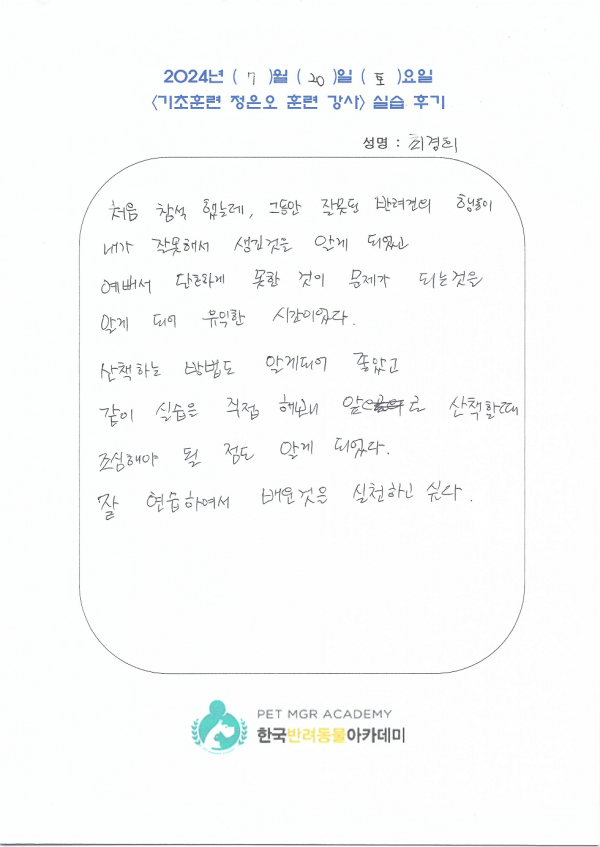 2024년 ( 7 )월 ( 20 )일 ( 토 )요일
<기초훈련 정은오 훈련 강사> 실습 후기
성명 : 최경희
처음 참석 했는데, 그동안 잘못된 반려견의 행동이
내가 잘못해서 생긴것을 알게 되었고
예뻐서 단호하게 못한 것이 문제가 되는것을
알게 되어 유익한 시간이었다.
산책하는 방법도 알게되어 좋았고
같이 실습은 직접 해보내 앞으로 산책할때
조심해야 될 점도 알게 되었다.
잘 연습하여서 배운것을 실천하고 싶다.
PET MGR ACADEMY
한국반려동물아카데미